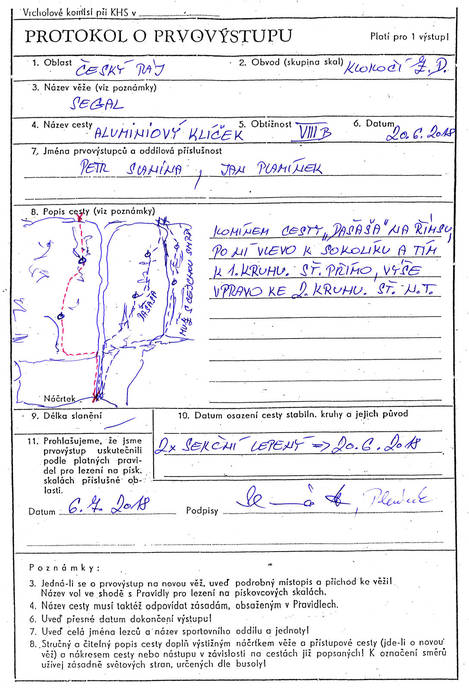 Vrcholové komisi při KHS v
PROTOKOL O PRVOVÝSTUPU
Platí pro 1 výstup!
1. Oblast ČESKÝ RÁJ 2. Obvod (skupina skal) KLOKOČÍ Z.D.
3. Název věže (viz poznámky)
SEGAL
4. Název cesty ALUMINIOVÝ KLÍČEK 5. Obtížnost VIII B 6. Datum 20.6.2018
7. Jména prvovýstupců a oddílová příslušnost
PETR SLANINA, JAN PLAMÍNEK
8. Popis cesty (viz poznámky)
KOMÍNEM CESTY „PAŠÁŠA" NA ŘÍMSU,
PO NÍ VLEVO K SOKOLÍKU A TÍM
K 1. KRUHU. ST. PŘÍMO, VÝŠE
VPRAVO KE 2. KRUHU. ST. N.T.
PAŠÁŠA
Náčrtek
9. Délka slanění
10. Datum osazení cesty stabiln. kruhy a jejich původ
2x SEKČNÍ LEPENÝ => 20.6.2018
11. Prohlašujeme, že jsme
prvovýstup uskutečnili
podle platných pravi-
del pro lezení na písk.
skalách příslušné ob-
lasti.
Datum 6.7.2018 Podpisy
Poznámky:
3. Jedná-li se o prvovýstup na novou věž, uveď podrobný místopis a příchod ke věži!
Název vol ve shodě s Pravidly pro lezení na pískovcových skalách.
4. Název cesty musí taktéž odpovídat zásadám, obsaženým v Pravidlech.
6. Uveď přesné datum dokončení výstupu!
7. Uveď celá jména lezců a název sportovního oddílu a jednoty!
8. Stručný a čitelný popis cesty doplň výstižným náčrtkem věže a přístupové cesty (jde-li o novou
věž) a nákresem cesty nebo nástupu v závislosti na cestách již popsaných! K označení směrů
užívej zásadně světových stran, určených dle busoly!